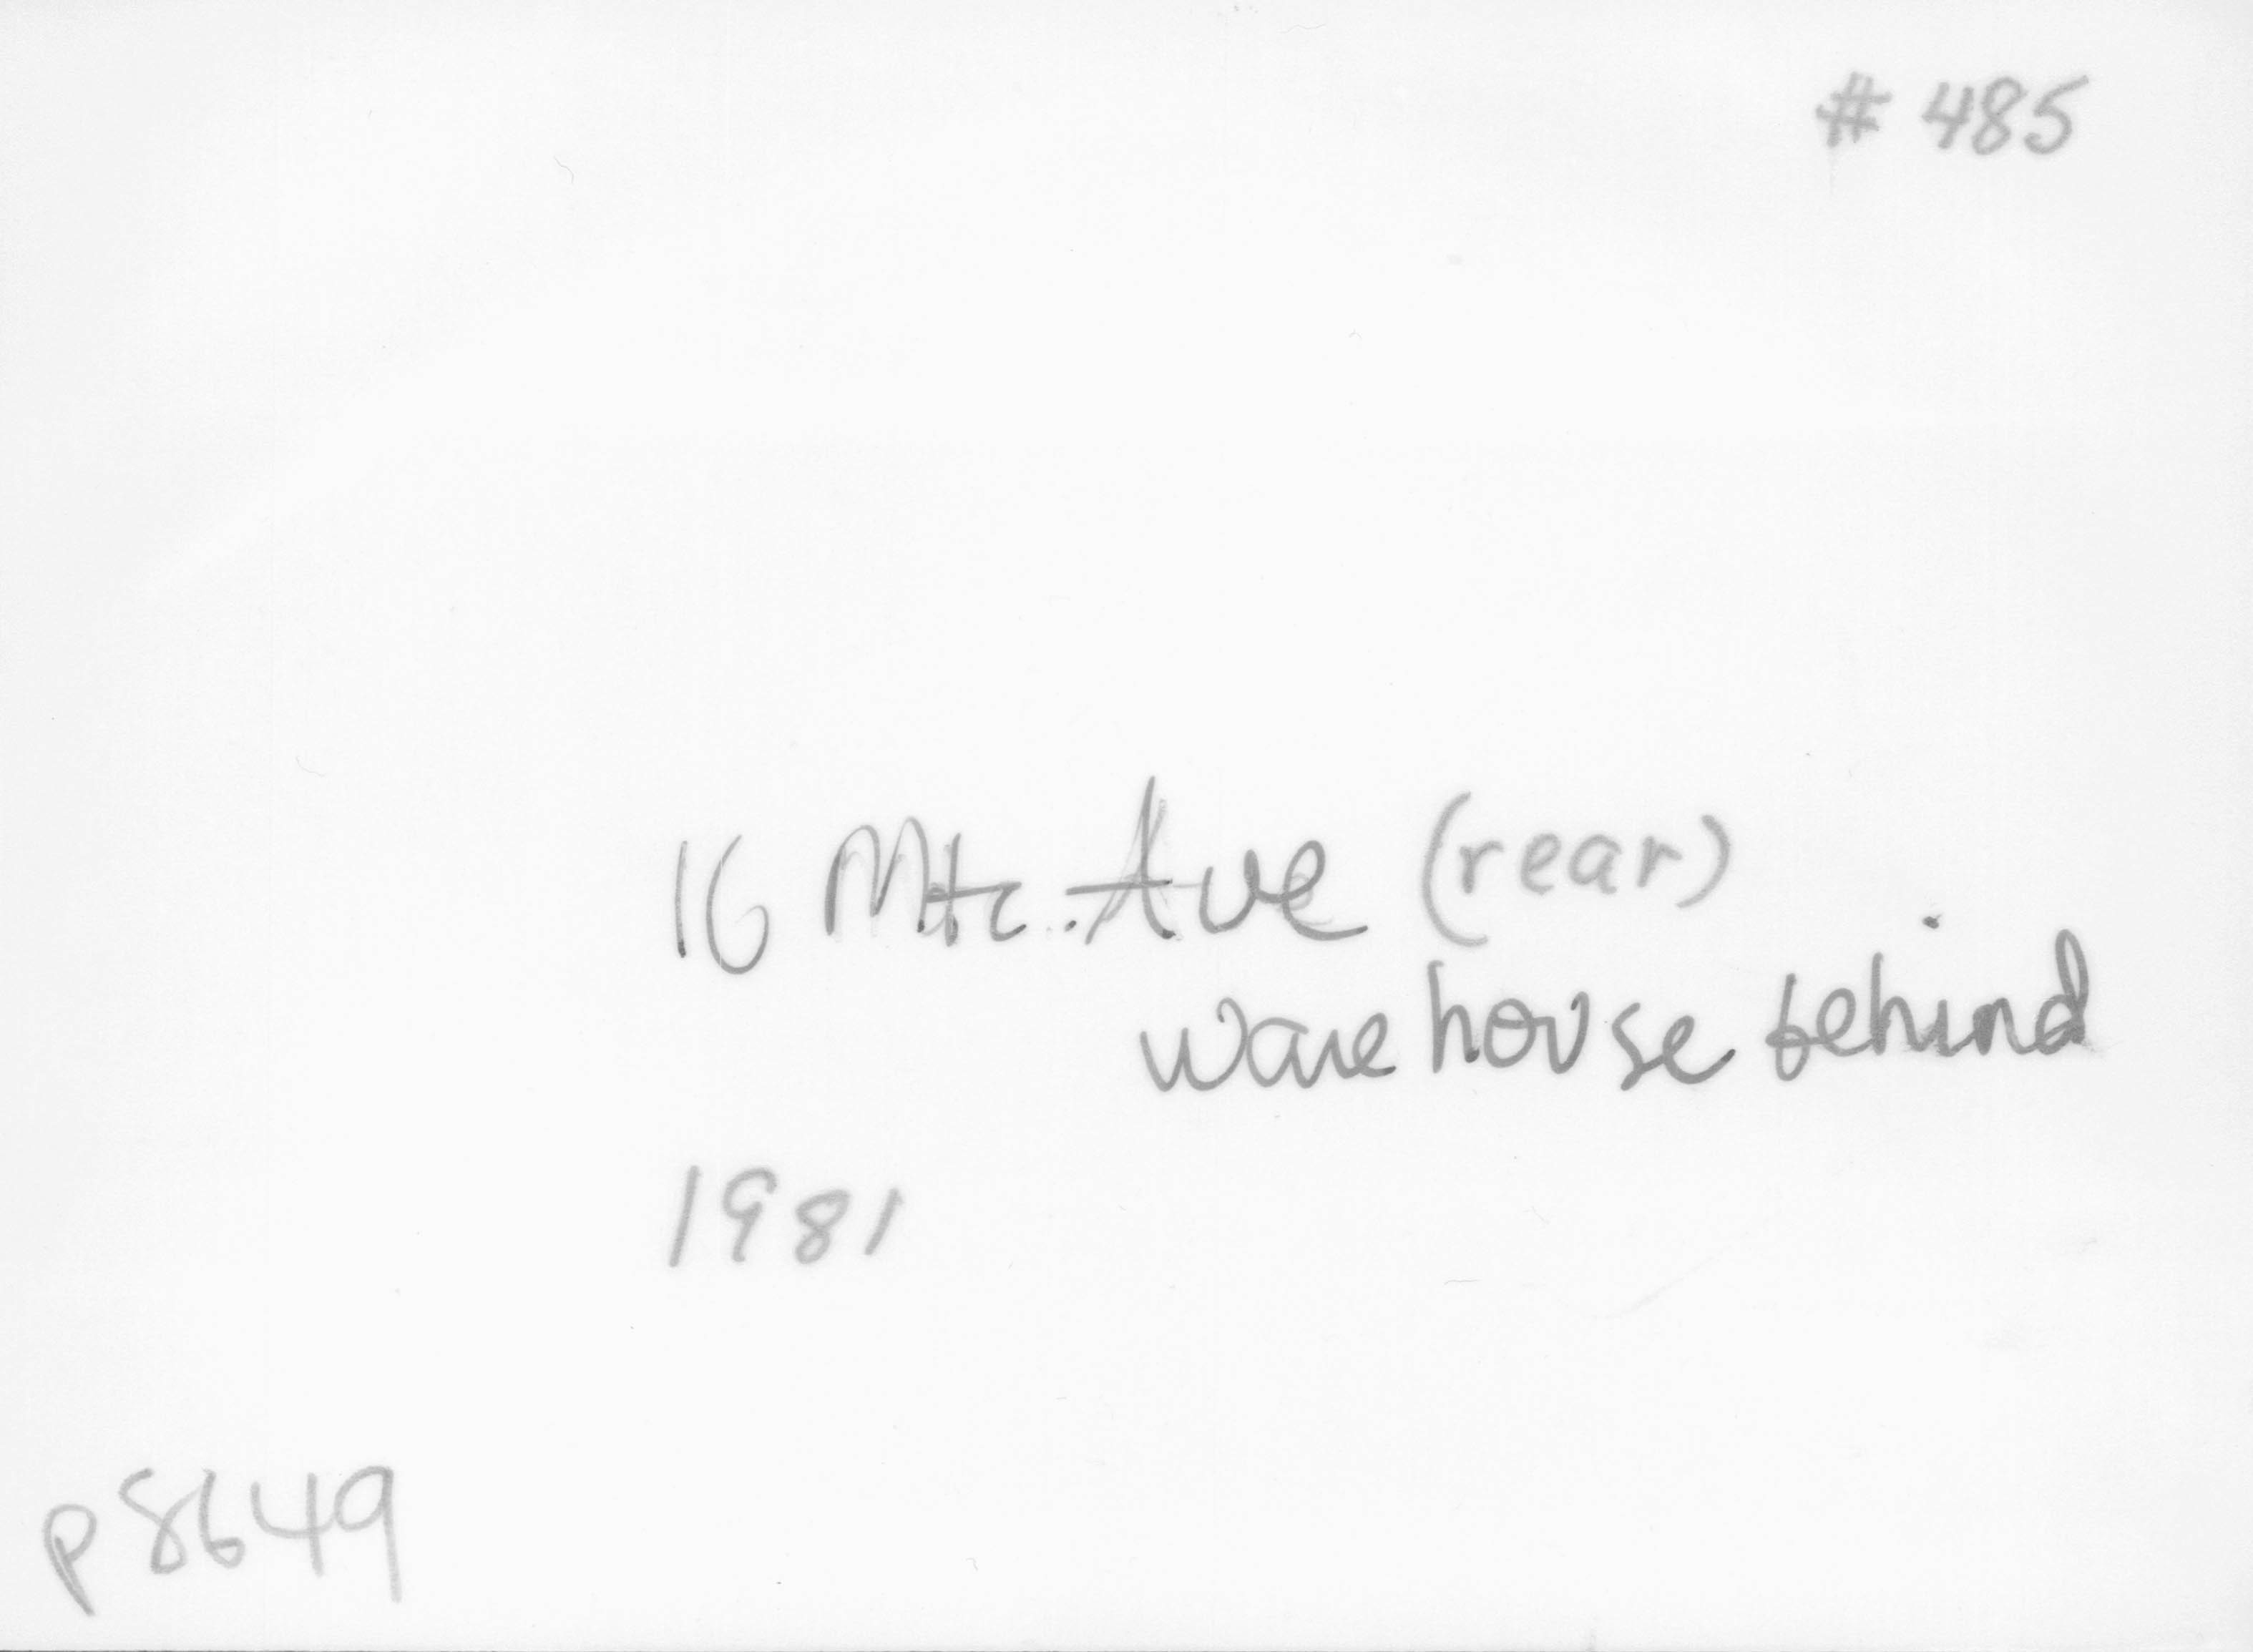 # 485
16 Mtc. Ave (rear)
warehouse behind
1981
p8649